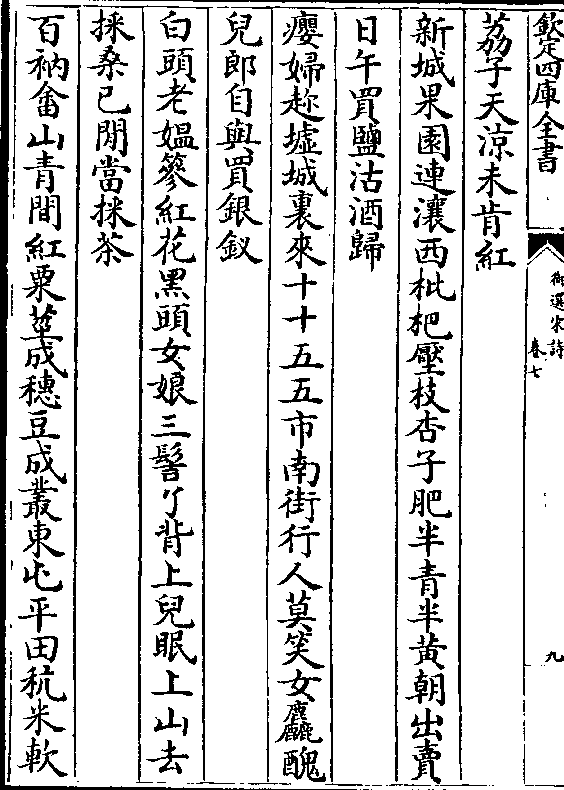 欽定四庫全書
御選宋詩
卷七
九
荔子天涼未肯紅
新城果園連瀼西枇杷壓枝杏子肥半青半黃朝出賣
日午買鹽沽酒歸
癭婦趂墟城裏來十十五五市南街行人莫笑女麤醜
兒郎自與買銀釵
白頭老媼篸紅花黑頭女娘三髻丫背上兒眠上山去
採桑已閒當採茶
百衲畬山青間紅粟莖成穗豆成叢東屯平田秔米軟